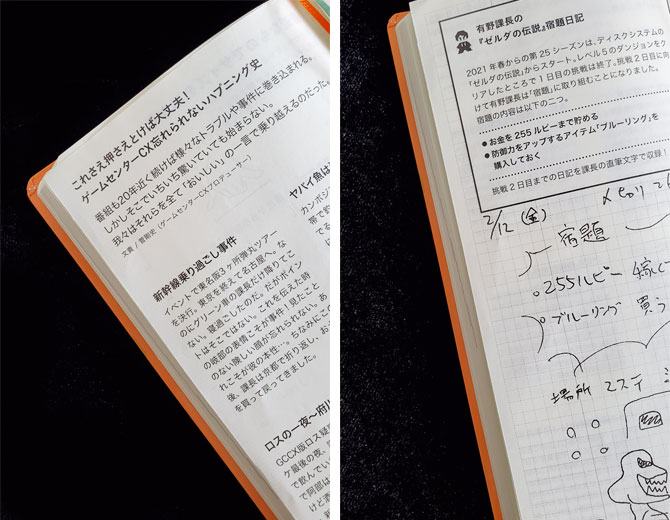 これさえ押さえとけば大丈夫！
ゲームセンターCX忘れられないハプニング史
番組も20年近く続けば様々なトラブルや事件に巻き込まれる。
しかしそこでいちいち驚いていても始まらない。
我々はそれらを全て「おいしい」の一言で乗り越えるのだった。
文責／菅剛史（ゲームセンターCXプロデューサー）
新幹線乗り過ごし事件
イベントで東名阪3ヶ所弾丸ツアー
を決行。東京を終えて名古屋へ。な
のにグリーン車の課長だけ降りてこ
ない。寝過ごしたのだ。だがポイン
トはそこではない。これを伝えた時
の岐部の表情こそが事件！見たこと
のない険しい顔が忘れられない。あ
れこそが彼の本性…。ちなみにこの
後、課長は京都で折り返し、お
を買って戻ってきました。
ロスの一夜〜府川
GCCX版ロス疑
ケ最後の夜、
で飲んでい
で阿部は
けど酒
ヤバイ魚は
カンボジ
帯で釣
有野課長の
『ゼルダの伝説』宿題日記
2021年春からの第25シーズンは、ディスクシステムの
『ゼルダの伝説』からスタート。レベル5のダンジョンをク
リアしたところで1日目の挑戦は終了。挑戦2日目に向
けて有野課長は「宿題」に取り組むことになりました。
宿題の内容は以下の二つ。
●お金を255ルビーまで貯める
●防御力をアップするアイテム「ブルーリング」を
購入しておく
挑戦2日目までの日記を課長の直筆文字で収録！
2/12（金）
宿題
255ルビー 稼ぐ
ブルーリング 買う
場所